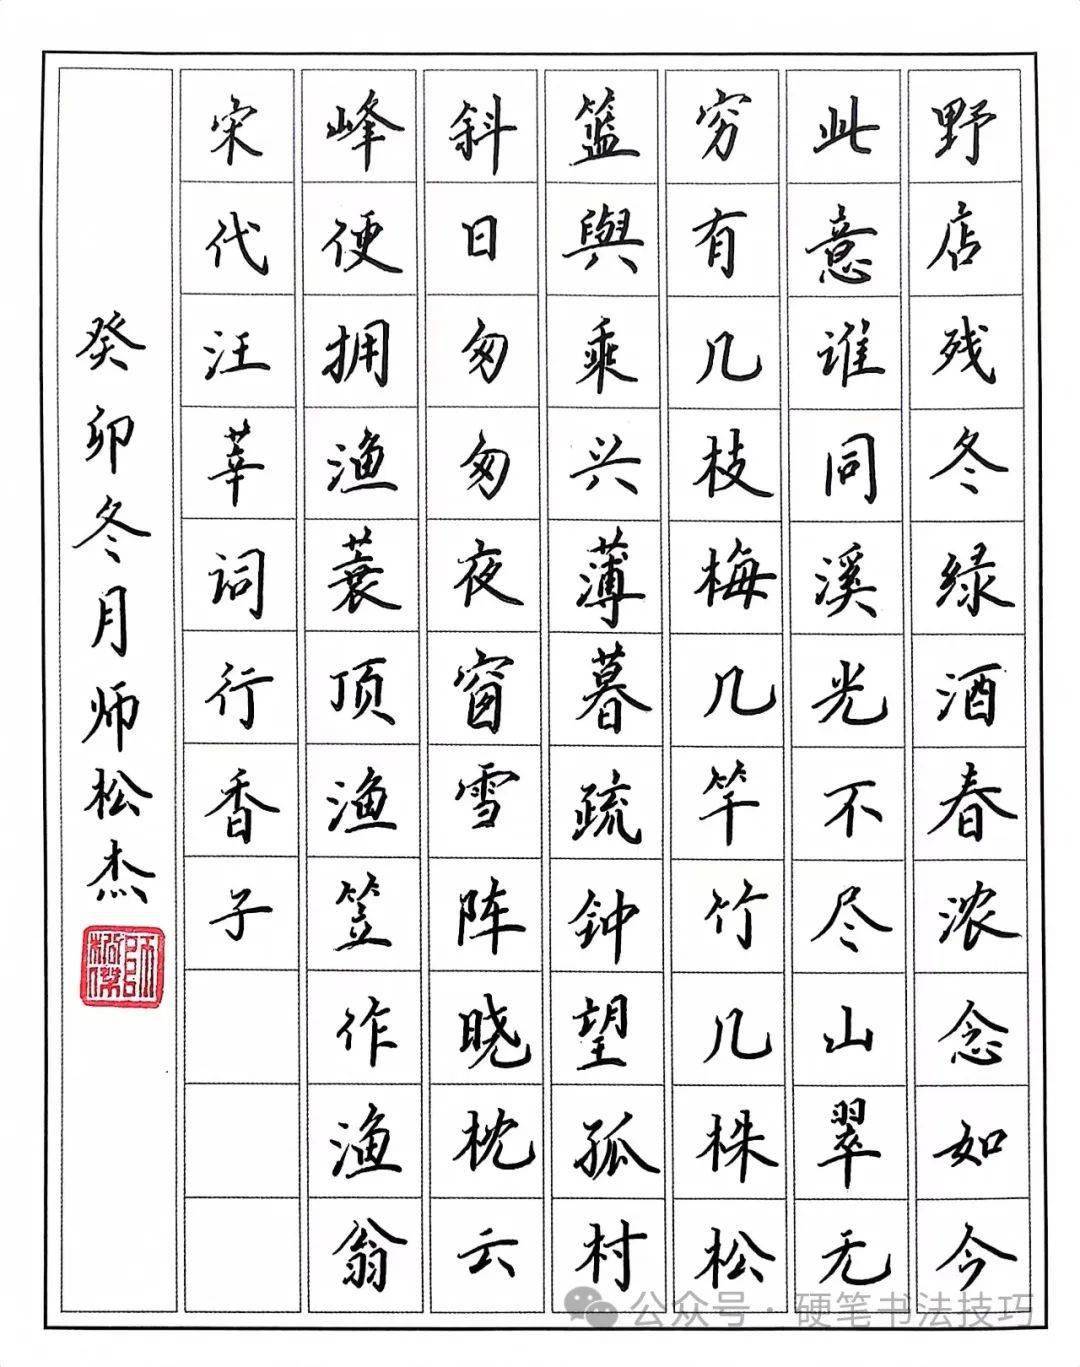 野店残冬绿酒春浓念如今
此意谁同溪光不尽山翠无
穷有几枝梅几竿竹几株松
篮舆乘兴薄暮疏钟望孤村
斜日匆匆夜窗雪阵晓枕云
峰便拥渔蓑顶渔笠作渔翁
宋代汪莘词行香子
癸卯冬月师松杰
公众号·硬笔书法技巧